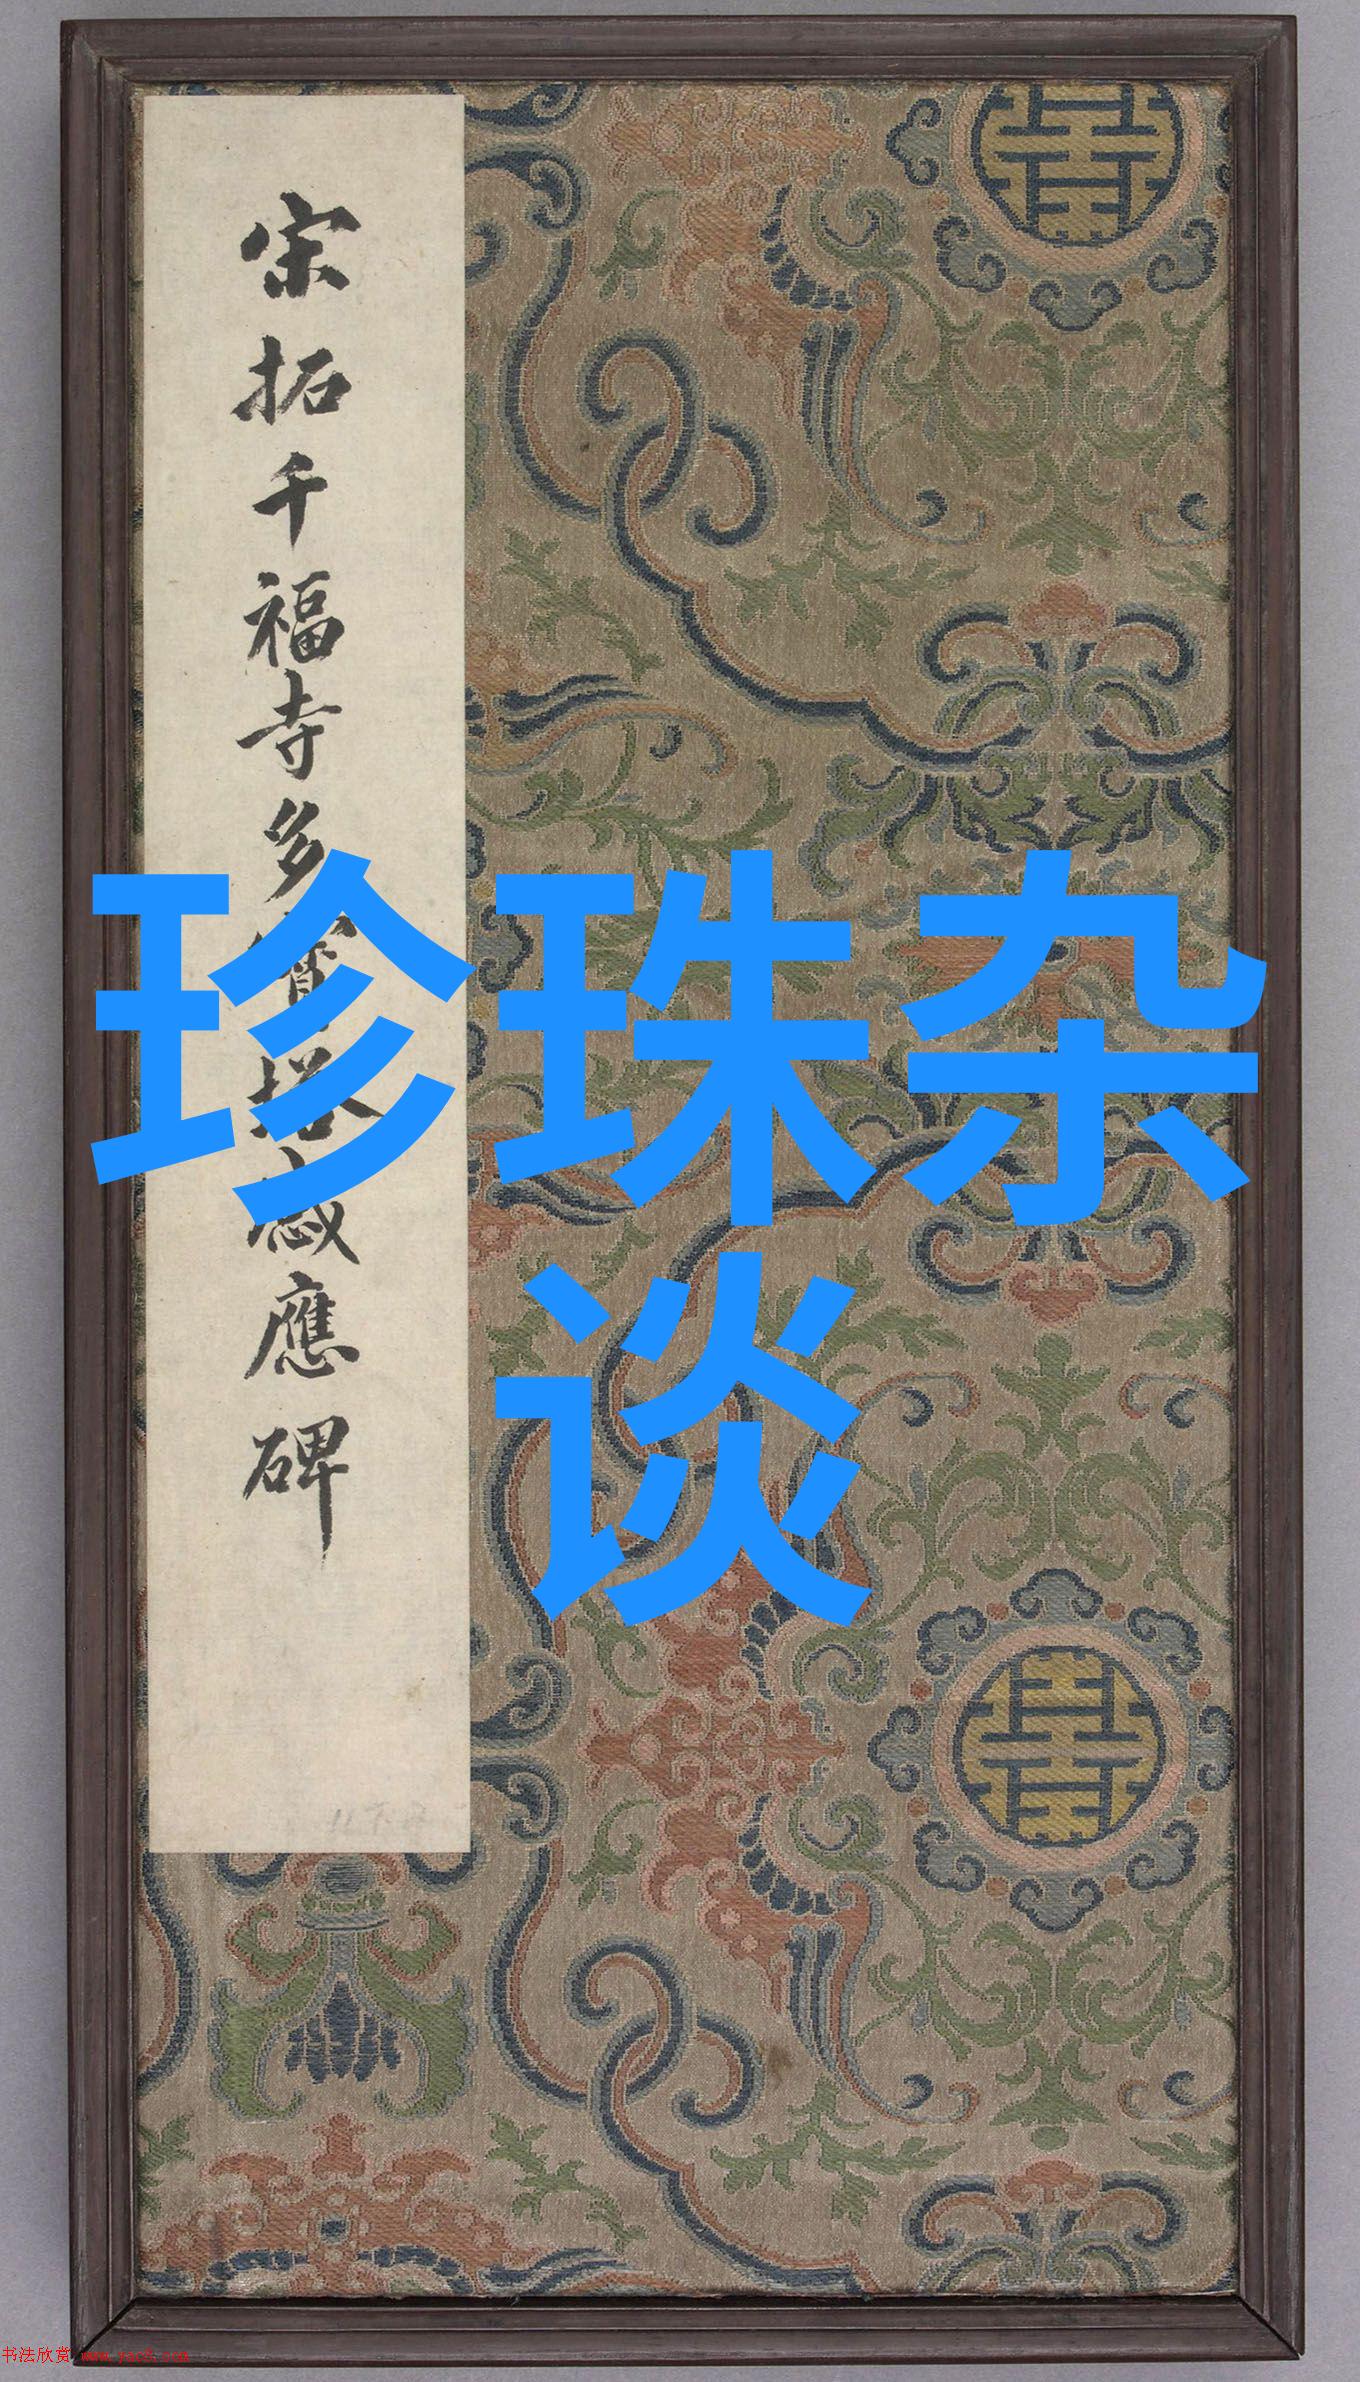 宋拓千福寺多寶塔感應碑
珍珠杂
谈
书法欣赏 www.yac8.com